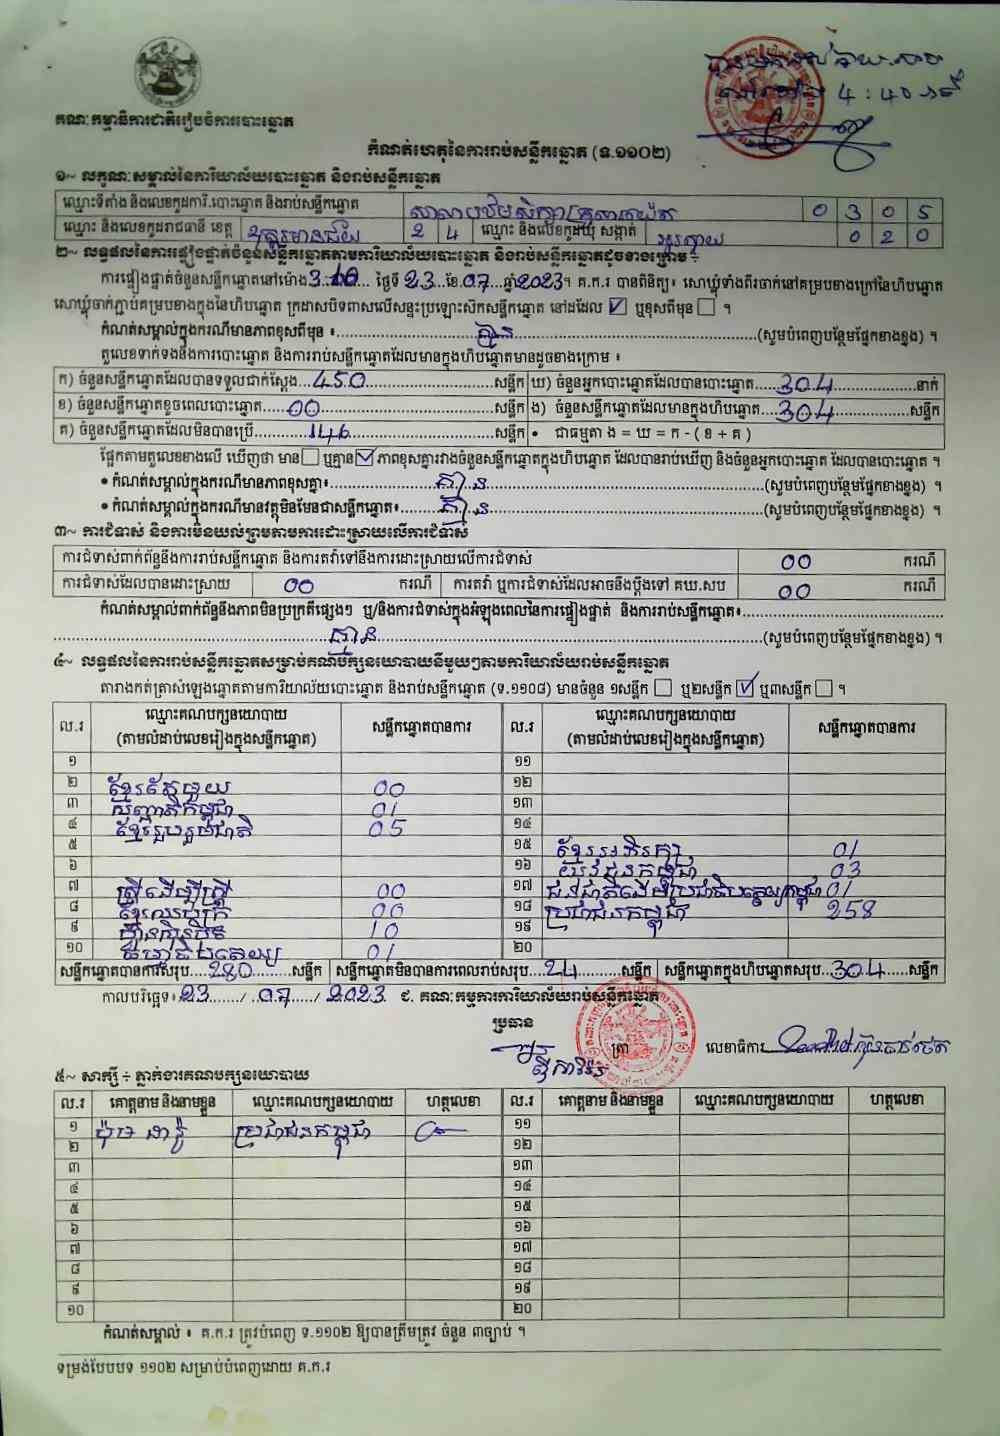 បានមកដល់ ឃុំ.សប
នៅម៉ោង 4:40 នាទី
គណៈកម្មាធិការជាតិរៀបចំការបោះឆ្នោត
កំណត់ហេតុនៃការរាប់សន្លឹកឆ្នោត (ទ.១១០២)
១~ លក្ខណៈសម្គាល់នៃការិយាល័យបោះឆ្នោត និងរាប់សន្លឹកឆ្នោត
ឈ្មោះទីតាំង និងលេខកូដការិ.បោះឆ្នោត និងរាប់សន្លឹកឆ្នោត សាលាបឋមសិក្សា 0 3 0 5
ឈ្មោះ និងលេខកូដរាជធានី ខេត្ត ឧត្តរមានជ័យ 2 4 ឈ្មោះ និងលេខកូដឃុំ សង្កាត់ អូរស្វាយ 0 2 0
២~ លទ្ធផលនៃការផ្ទៀងផ្ទាត់ចំនួនសន្លឹកឆ្នោតតាមការិយាល័យបោះឆ្នោត និងរាប់សន្លឹកឆ្នោតដូចខាងក្រោម ÷
ការផ្ទៀងផ្ទាត់ចំនួនសន្លឹកឆ្នោតនៅម៉ោង 3:10 ថ្ងៃទី 23 ខែ 07 ឆ្នាំ 2023។ គ.ក.រ បានពិនិត្យ៖ សោឃ្លុំទាំងពីរចាក់នៅគម្របខាងក្រៅនៃហិបឆ្នោត
សោឃ្លុំចាក់ភ្ជាប់គម្របខាងក្នុងនៃហិបឆ្នោត ក្រដាសបិទពាសលើសន្ទះប្រឡោះសិកសន្លឹកឆ្នោត នៅដដែល ☑ ឬខុសពីមុន ☐ ។
កំណត់សម្គាល់ក្នុងករណីមានភាពខុសពីមុន ៖ គ្មាន (សូមបំពេញបន្ថែមផ្នែកខាងខ្នង) ។
តួលេខទាក់ទងនឹងការបោះឆ្នោត និងការរាប់សន្លឹកឆ្នោតដែលមានក្នុងហិបឆ្នោតមានដូចខាងក្រោម ៖
ក) ចំនួនសន្លឹកឆ្នោតដែលបានទទួលជាក់ស្តែង 450 សន្លឹក ឃ) ចំនួនអ្នកបោះឆ្នោតដែលបានបោះឆ្នោត 304 នាក់
ខ) ចំនួនសន្លឹកឆ្នោតខូចពេលបោះឆ្នោត 00 សន្លឹក ង) ចំនួនសន្លឹកឆ្នោតដែលមានក្នុងហិបឆ្នោត 304 សន្លឹក
គ) ចំនួនសន្លឹកឆ្នោតដែលមិនបានប្រើ 146 សន្លឹក • ជាធម្មតា ង = ឃ = ក - ( ខ + គ )
ផ្អែកតាមតួលេខខាងលើ ឃើញថា មាន ☐ ឬគ្មាន ☑ ភាពខុសគ្នារវាងចំនួនសន្លឹកឆ្នោតក្នុងហិបឆ្នោត ដែលបានរាប់ឃើញ និងចំនួនអ្នកបោះឆ្នោត ដែលបានបោះឆ្នោត ។
• កំណត់សម្គាល់ក្នុងករណីមានភាពខុសគ្នា៖ គ្មាន (សូមបំពេញបន្ថែមផ្នែកខាងខ្នង) ។
• កំណត់សម្គាល់ក្នុងករណីមានវត្ថុមិនមែនជាសន្លឹកឆ្នោត៖ គ្មាន (សូមបំពេញបន្ថែមផ្នែកខាងខ្នង) ។
៣~ ការជំទាស់ និងការមិនយល់ព្រមតាមការដោះស្រាយលើការជំទាស់
ការជំទាស់ពាក់ព័ន្ធនឹងការរាប់សន្លឹកឆ្នោត និងការតវ៉ាទៅនឹងការដោះស្រាយលើការជំទាស់ 00 ករណី
ការជំទាស់ដែលបានដោះស្រាយ 00 ករណី ការតវ៉ា ឬការជំទាស់ដែលអាចនឹងប្តឹងទៅ គឃ.សប 00 ករណី
កំណត់សម្គាល់ពាក់ព័ន្ធនឹងភាពមិនប្រក្រតីផ្សេងៗ ឬ/និងការជំទាស់ក្នុងអំឡុងពេលនៃការផ្ទៀងផ្ទាត់ និងការរាប់សន្លឹកឆ្នោត៖
គ្មាន (សូមបំពេញបន្ថែមផ្នែកខាងខ្នង) ។
៤~ លទ្ធផលនៃការរាប់សន្លឹកឆ្នោតសម្រាប់គណបក្សនយោបាយនីមួយៗតាមការិយាល័យរាប់សន្លឹកឆ្នោត
តារាងកត់ត្រាសំឡេងឆ្នោតតាមការិយាល័យបោះឆ្នោត និងរាប់សន្លឹកឆ្នោត (ទ.១១០៨) មានចំនួន ១សន្លឹក ☐ ឬ២សន្លឹក ☑ ឬ៣សន្លឹក ☐ ។
ល.រ ឈ្មោះគណបក្សនយោបាយ សន្លឹកឆ្នោតបានការ ល.រ ឈ្មោះគណបក្សនយោបាយ សន្លឹកឆ្នោតបានការ
(តាមលំដាប់លេខរៀងក្នុងសន្លឹកឆ្នោត) (តាមលំដាប់លេខរៀងក្នុងសន្លឹកឆ្នោត)
១ ១១
២ ខ្មែរតែមួយ 00 ១២
៣ សញ្ជាតិកម្ពុជា 01 ១៣
៤ ខ្មែររួបរួមជាតិ 05 ១៤
៥ ១៥ ខ្មែរអភិរក្ស 01
៦ ១៦ យុវជនកម្ពុជា 03
៧ ស្ត្រីដើម្បីស្ត្រី 00 ១៧ ជនជាតិដើមប្រជាធិបតេយ្យកម្ពុជា 01
៨ ខ្មែរឈប់ក្រ 00 ១៨ ប្រជាជនកម្ពុជា 258
៩ ហ្វ៊ុនស៊ិនប៉ិច 10 ១៩
១០ ធម្មាធិបតេយ្យ 01 ២០
សន្លឹកឆ្នោតបានការសរុប 280 សន្លឹក សន្លឹកឆ្នោតមិនបានការពេលរាប់សរុប 24 សន្លឹក សន្លឹកឆ្នោតក្នុងហិបឆ្នោតសរុប 304 សន្លឹក
កាលបរិច្ឆេទ៖ 23 / 07 / 2023 ជ. គណៈកម្មការការិយាល័យរាប់សន្លឹកឆ្នោត
ប្រធាន
ត្រា លេខាធិការ
៥~ សាក្សី ÷ ភ្នាក់ងារគណបក្សនយោបាយ
ល.រ គោត្តនាម និងនាមខ្លួន ឈ្មោះគណបក្សនយោបាយ ហត្ថលេខា ល.រ គោត្តនាម និងនាមខ្លួន ឈ្មោះគណបក្សនយោបាយ ហត្ថលេខា
១ ប៉ុម នារ៉ូ ប្រជាជនកម្ពុជា ១១
២ ១២
៣ ១៣
៤ ១៤
៥ ១៥
៦ ១៦
៧ ១៧
៨ ១៨
៩ ១៩
១០ ២០
កំណត់សម្គាល់ ៖ គ.ក.រ ត្រូវបំពេញ ទ.១១០២ ឱ្យបានត្រឹមត្រូវ ចំនួន ៣ច្បាប់ ។
ទម្រង់បែបបទ ១១០២ សម្រាប់បំពេញដោយ គ.ក.រ